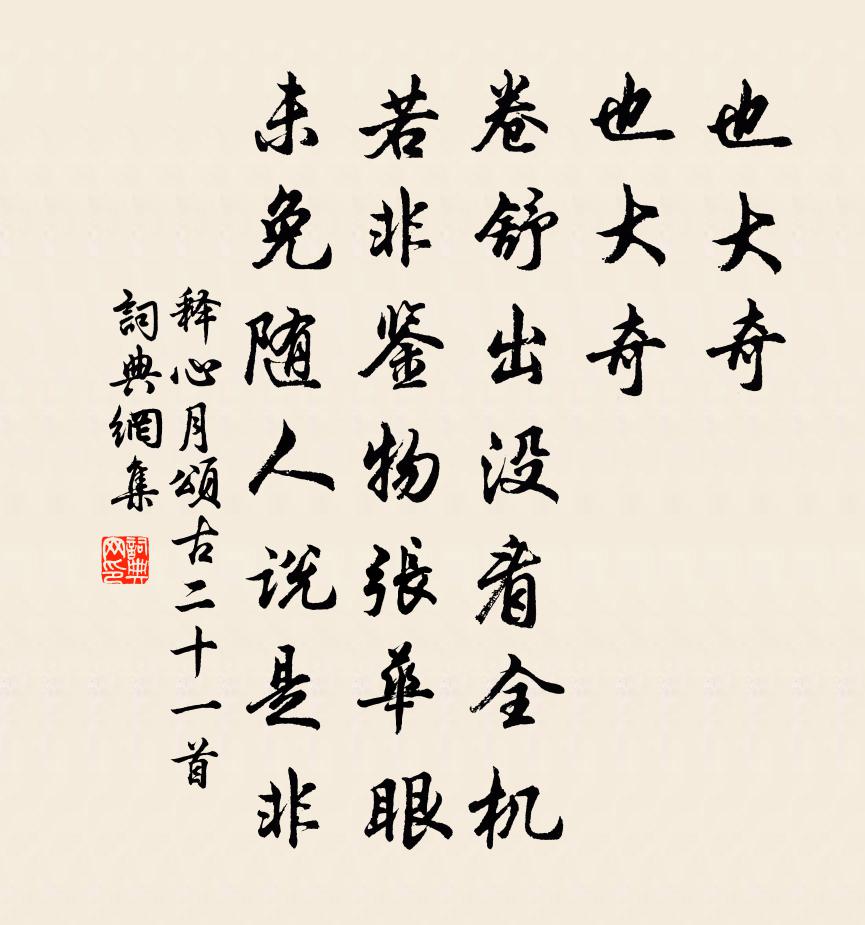 也大奇
也大奇
卷舒出没看全机
若非鉴物張華眼
未免随人说是非
释心月頌古二十一首
詞典網集
詞典網印